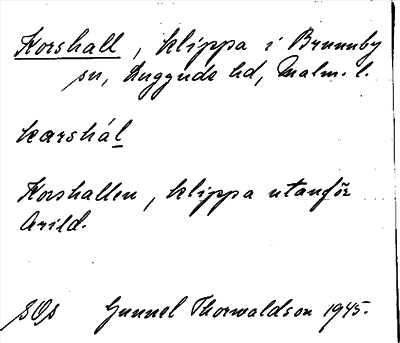 Korshall, klippa i Brunnby
sn, Luggude hd, Malm. l.
karshál
Korshallen, klippa utanför
Arild.
SOs Gunnel Thorwaldson 1945.